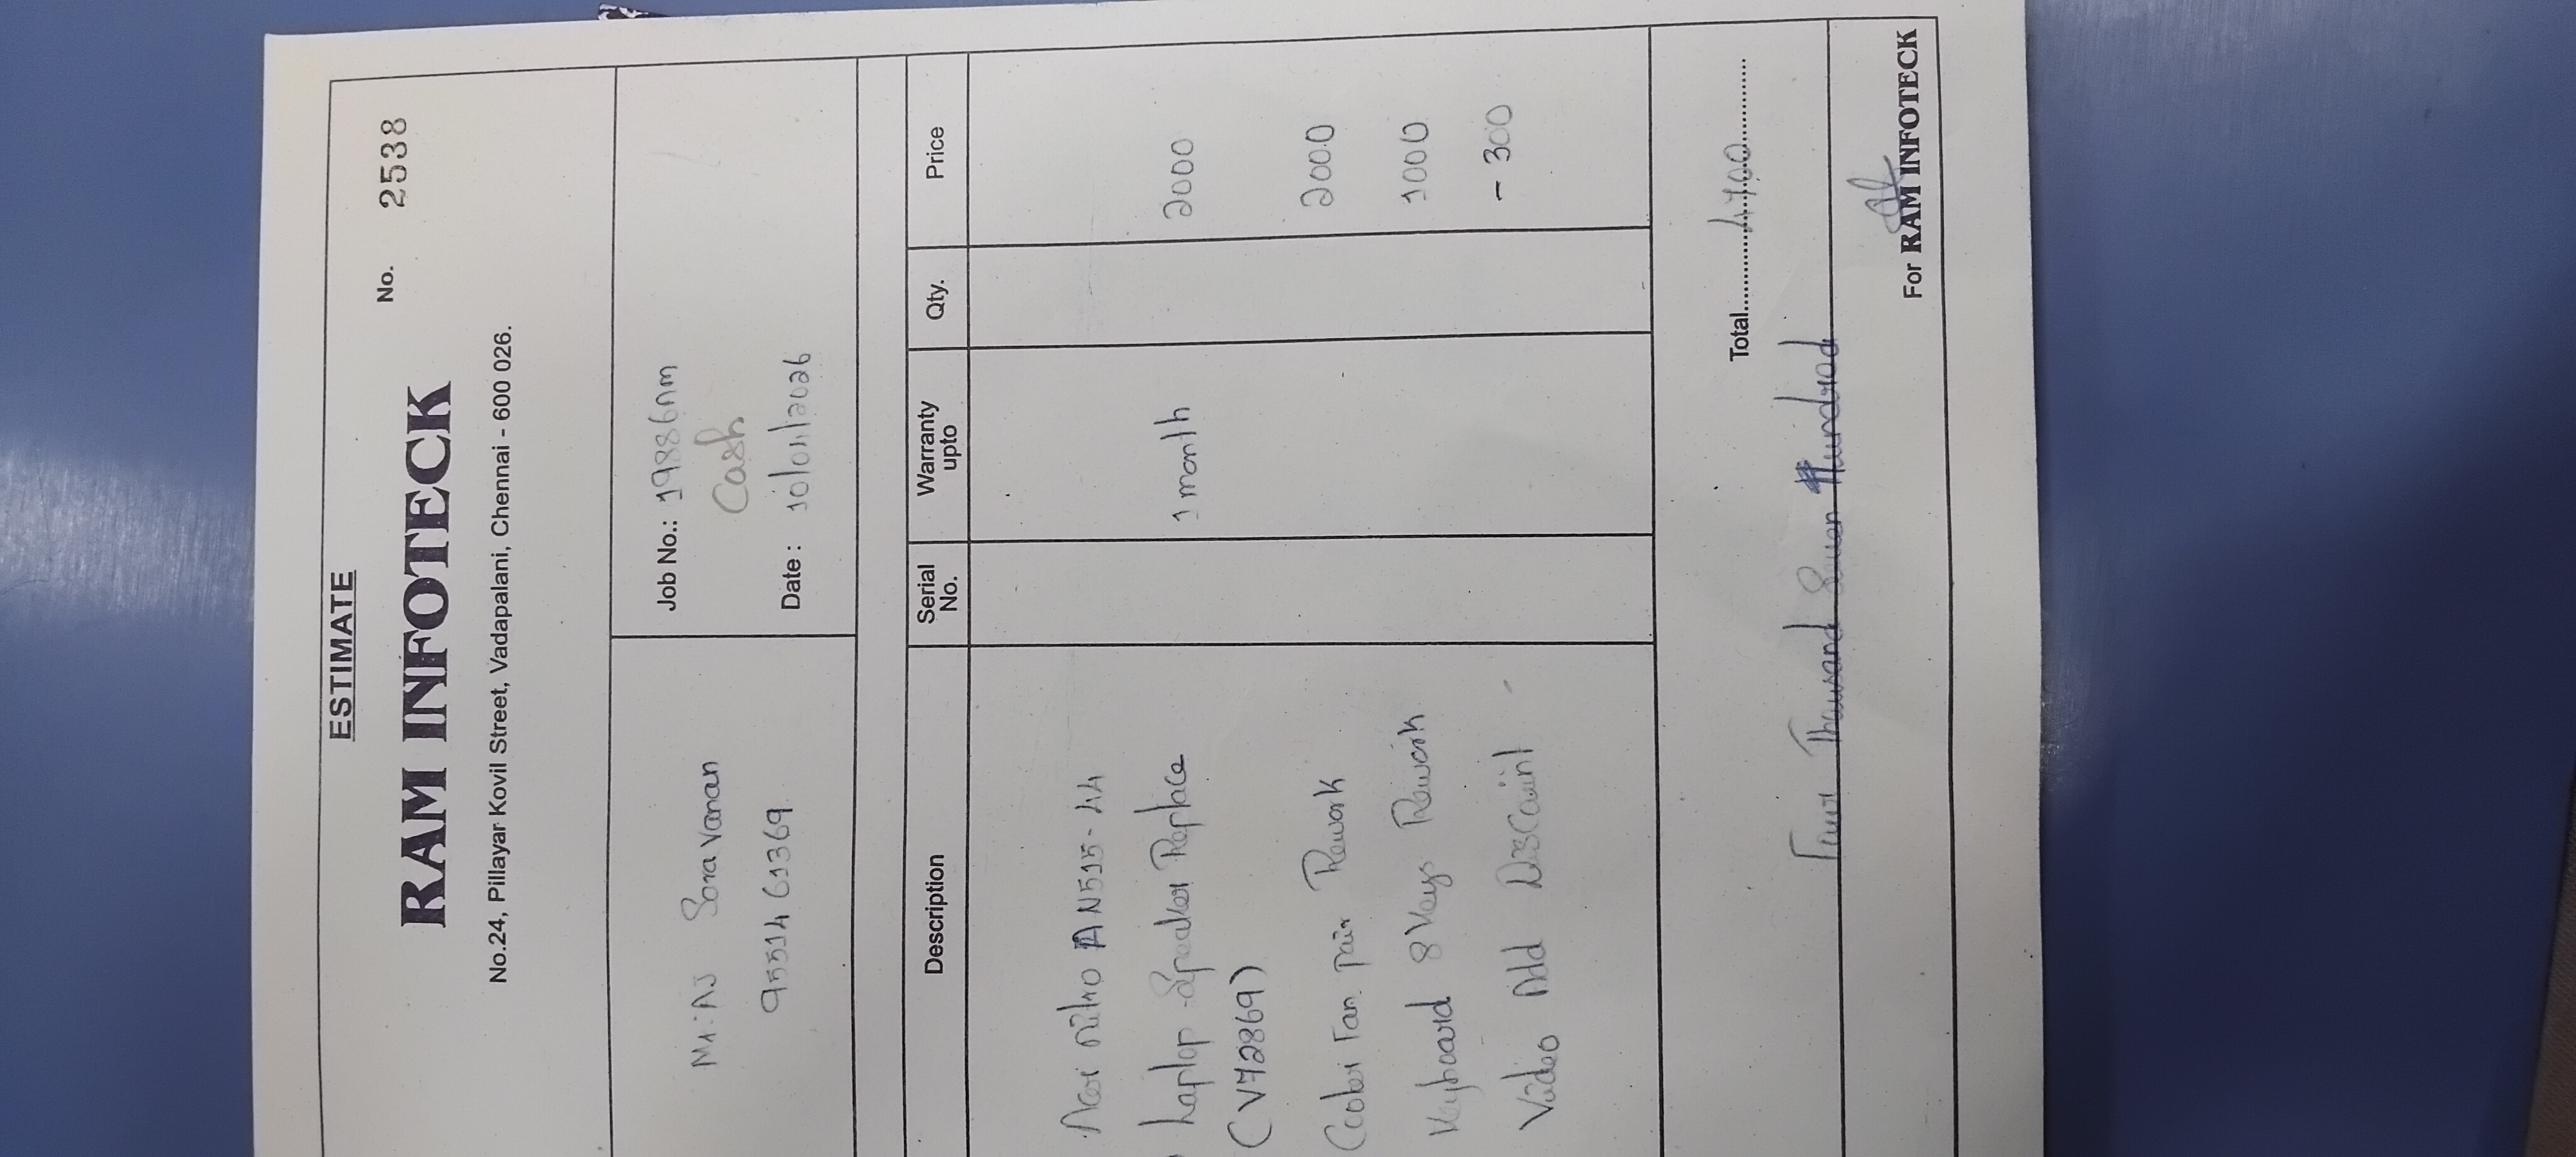 ESTIMATE
RAM INFOTECK
No. 2538
No.24, Pillayar Kovil Street, Vadapalani, Chennai - 600 026.
Mr: AJ Saravanan
9551461369
Job No.: 19886nm
Cash
Date : 10/01/2026
Description Serial No. Warranty upto Qty. Price
Acer nitro AN515-44
Laptop Speaker Replace 1 month 2000
(V72869)
Cooler Fan pair Rework 2000
Keyboard 8 Keys Rework 1000
Video Add Discount - 300
Total 4700
Four Thousand Seven Hundred
For RAM INFOTECK